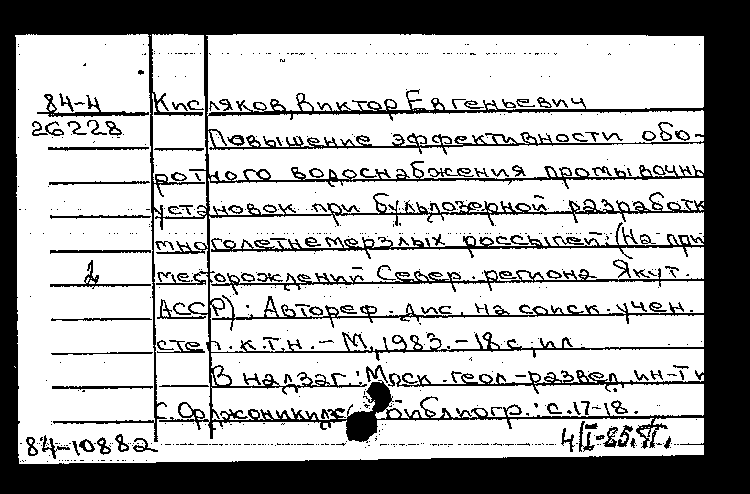 84-4 Кисляков, Виктор Евгеньевич
26228
Повышение эффективности обо-
ротного водоснабжения промывочны
установок при бульдозерной разработк
многолетнемерзлых россыпей: (На при
2 месторождений Север. региона Якут.
АССР): Автореф. дис. на соиск. учен.
степ. к.т.н. - М., 1983. - 18 с., ил.
В надзаг.: Моск. геол.-развед. ин-т и
С. Орджоникидзе Библиогр.: с. 17-18.
84-10882